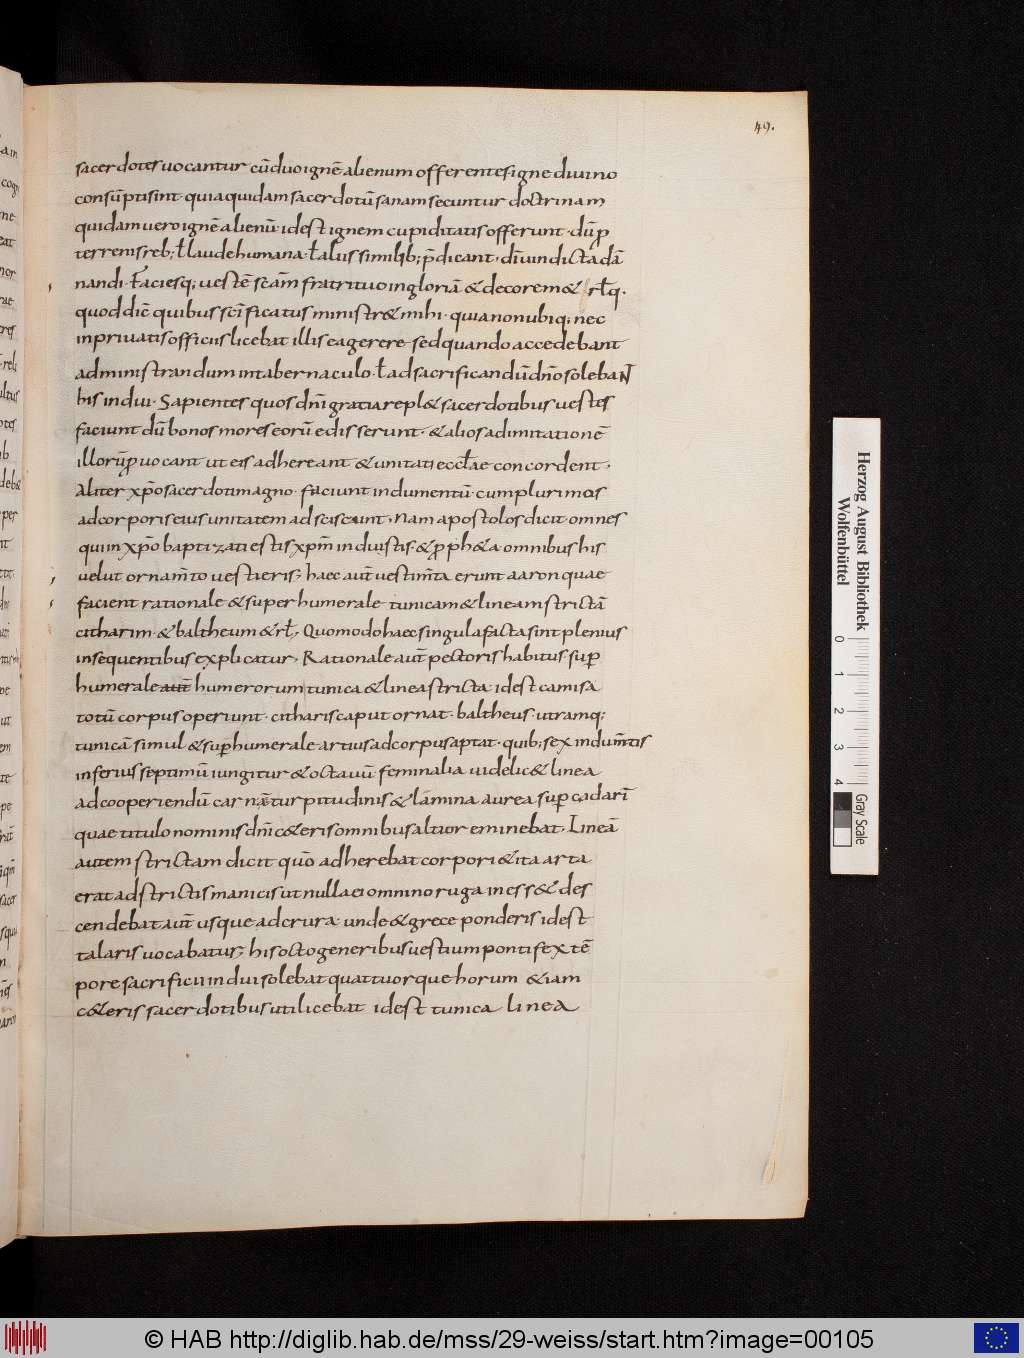 49.
sacerdotes uocantur cū duo ignē alienum offerentes igne diuino
consūpti sint · quia quidam sacerdotū sanam secuntur doctrinam
quidam uero ignē alienū · idest ignem cupiditatis offerunt · dū p̱
terrenis reb; ł laude humana · ł aliis similib; p̄dicant · dīuindicta dā
nandi · Faciesq; uestē sc̄am fratri tuo in gloriā & decorem & rł̄q·
quod diē quibus scīficatus ministr& mihi · quia non ubiq; nec
in priuatis officiis licebat illis ea gerere · sed quando accedebant
administrandum in tabernaculo · ł ad sacrificandū dn̄o soleban̄t
his indui · Sapientes quos dn̄i gratia repl& sacerdotibus uestes
faciunt dū bonos mores eorū edisserunt · & alios ad imitationē
illorū ꝓuocant ut eis adhereant & unitati eccłae concordent ·
Aliter xp̄o sacerdoti magno · faciunt indumentū · cum plurimos
ad corporis eius unitatem adsciscunt · Nam apostolos dicit omnes
qui in xp̄o baptizati estis xp̄m induistis · & ꝓph&a omnibus his
uelut ornam̄to uestieris; haec aut̄ uestim̄ta erunt aaron quae
facient rationale & superhumerale tunicam & lineam strictā
citharim · & baltheum & rł̄; Quomodo haec singula facta sint plenius
in sequentibus explicatur; Rationale aut̄ pectoris habitus · sup̱
humerale aut̄ humerorum tunica & linea stricta idest camisa
totū corpus operiunt · citharis caput ornat · baltheus · utramq;
tunicā simul & sup̱humerale artius ad corpus aptat · quib; sex indum̄tis
inferius septimū iungitur & octauū feminalia uidelic& linea
ad cooperiendū carnē turpitudinis & lāmina aurea sup̱ cadarī
quae titulo nominis dn̄i c&eris omnibus altior eminebat · Lineā
autem strictam dicit quō adherebat corpori & ita arta
erat adstrictis manicis ut nulla ei omnino ruga iness& · des
cendebat aut̄ usque ad crura · unde & grece ponderis idest
talaris uocabatur; his octo generibus uestium pontifex tē
pore sacrificii indui solebat quattuorque horum & iam
c&eris sacerdotibus uti licebat idest tunica linea
Herzog August Bibliothek
Wolfenbüttel
0 1 2 3 4
Gray Scale
© HAB http://diglib.hab.de/mss/29-weiss/start.htm?image=00105